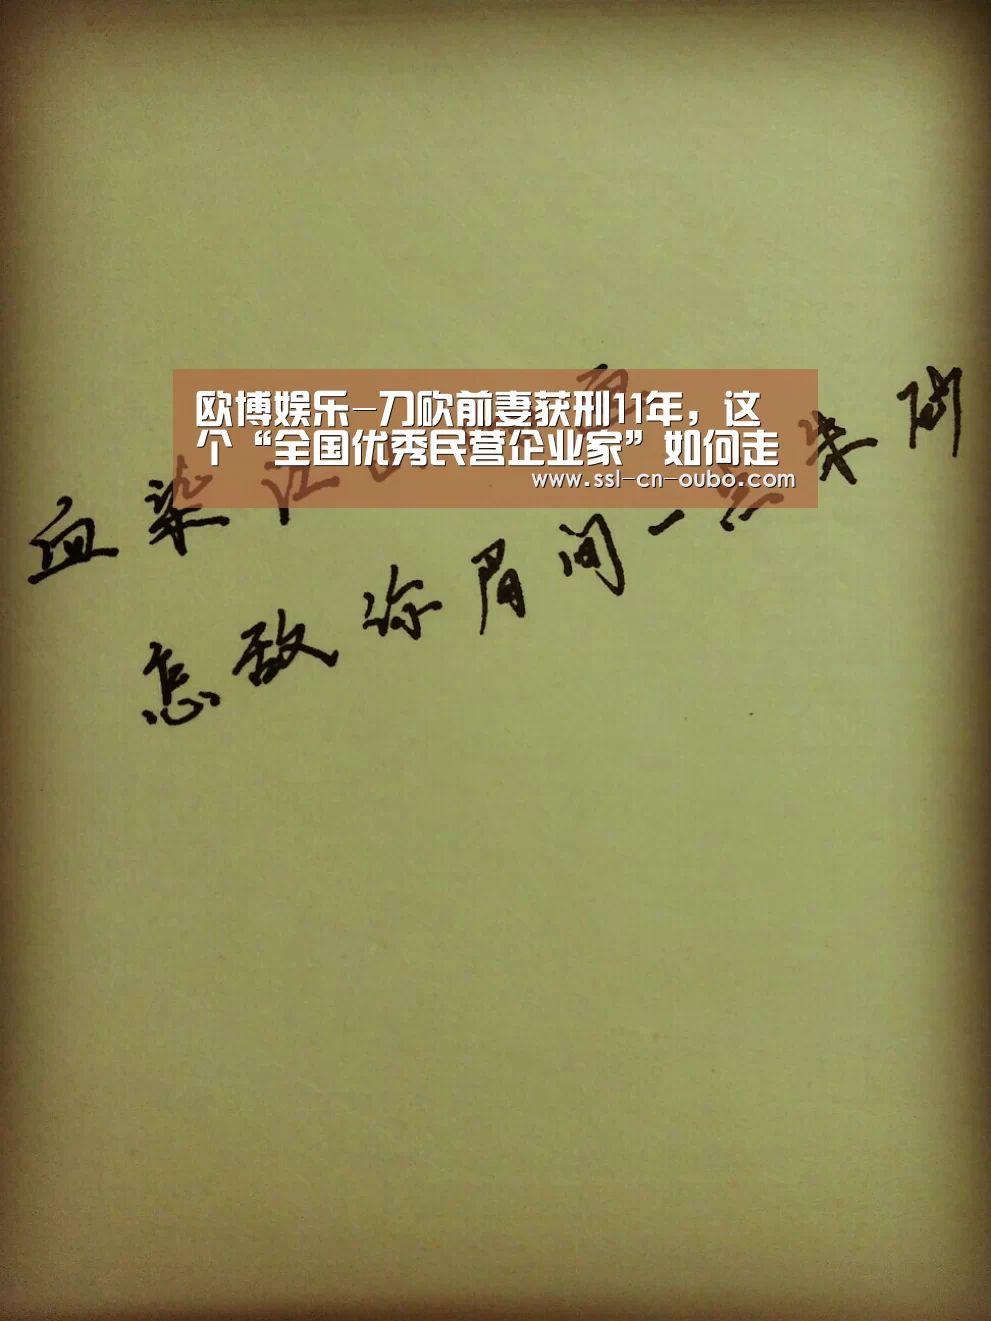 欧博娱乐-刀砍前妻获刑11年，这
个“全国优秀民营企业家”如何走
www.ssl-cn-oubo.com
血染江
怎敌你眉间一点朱